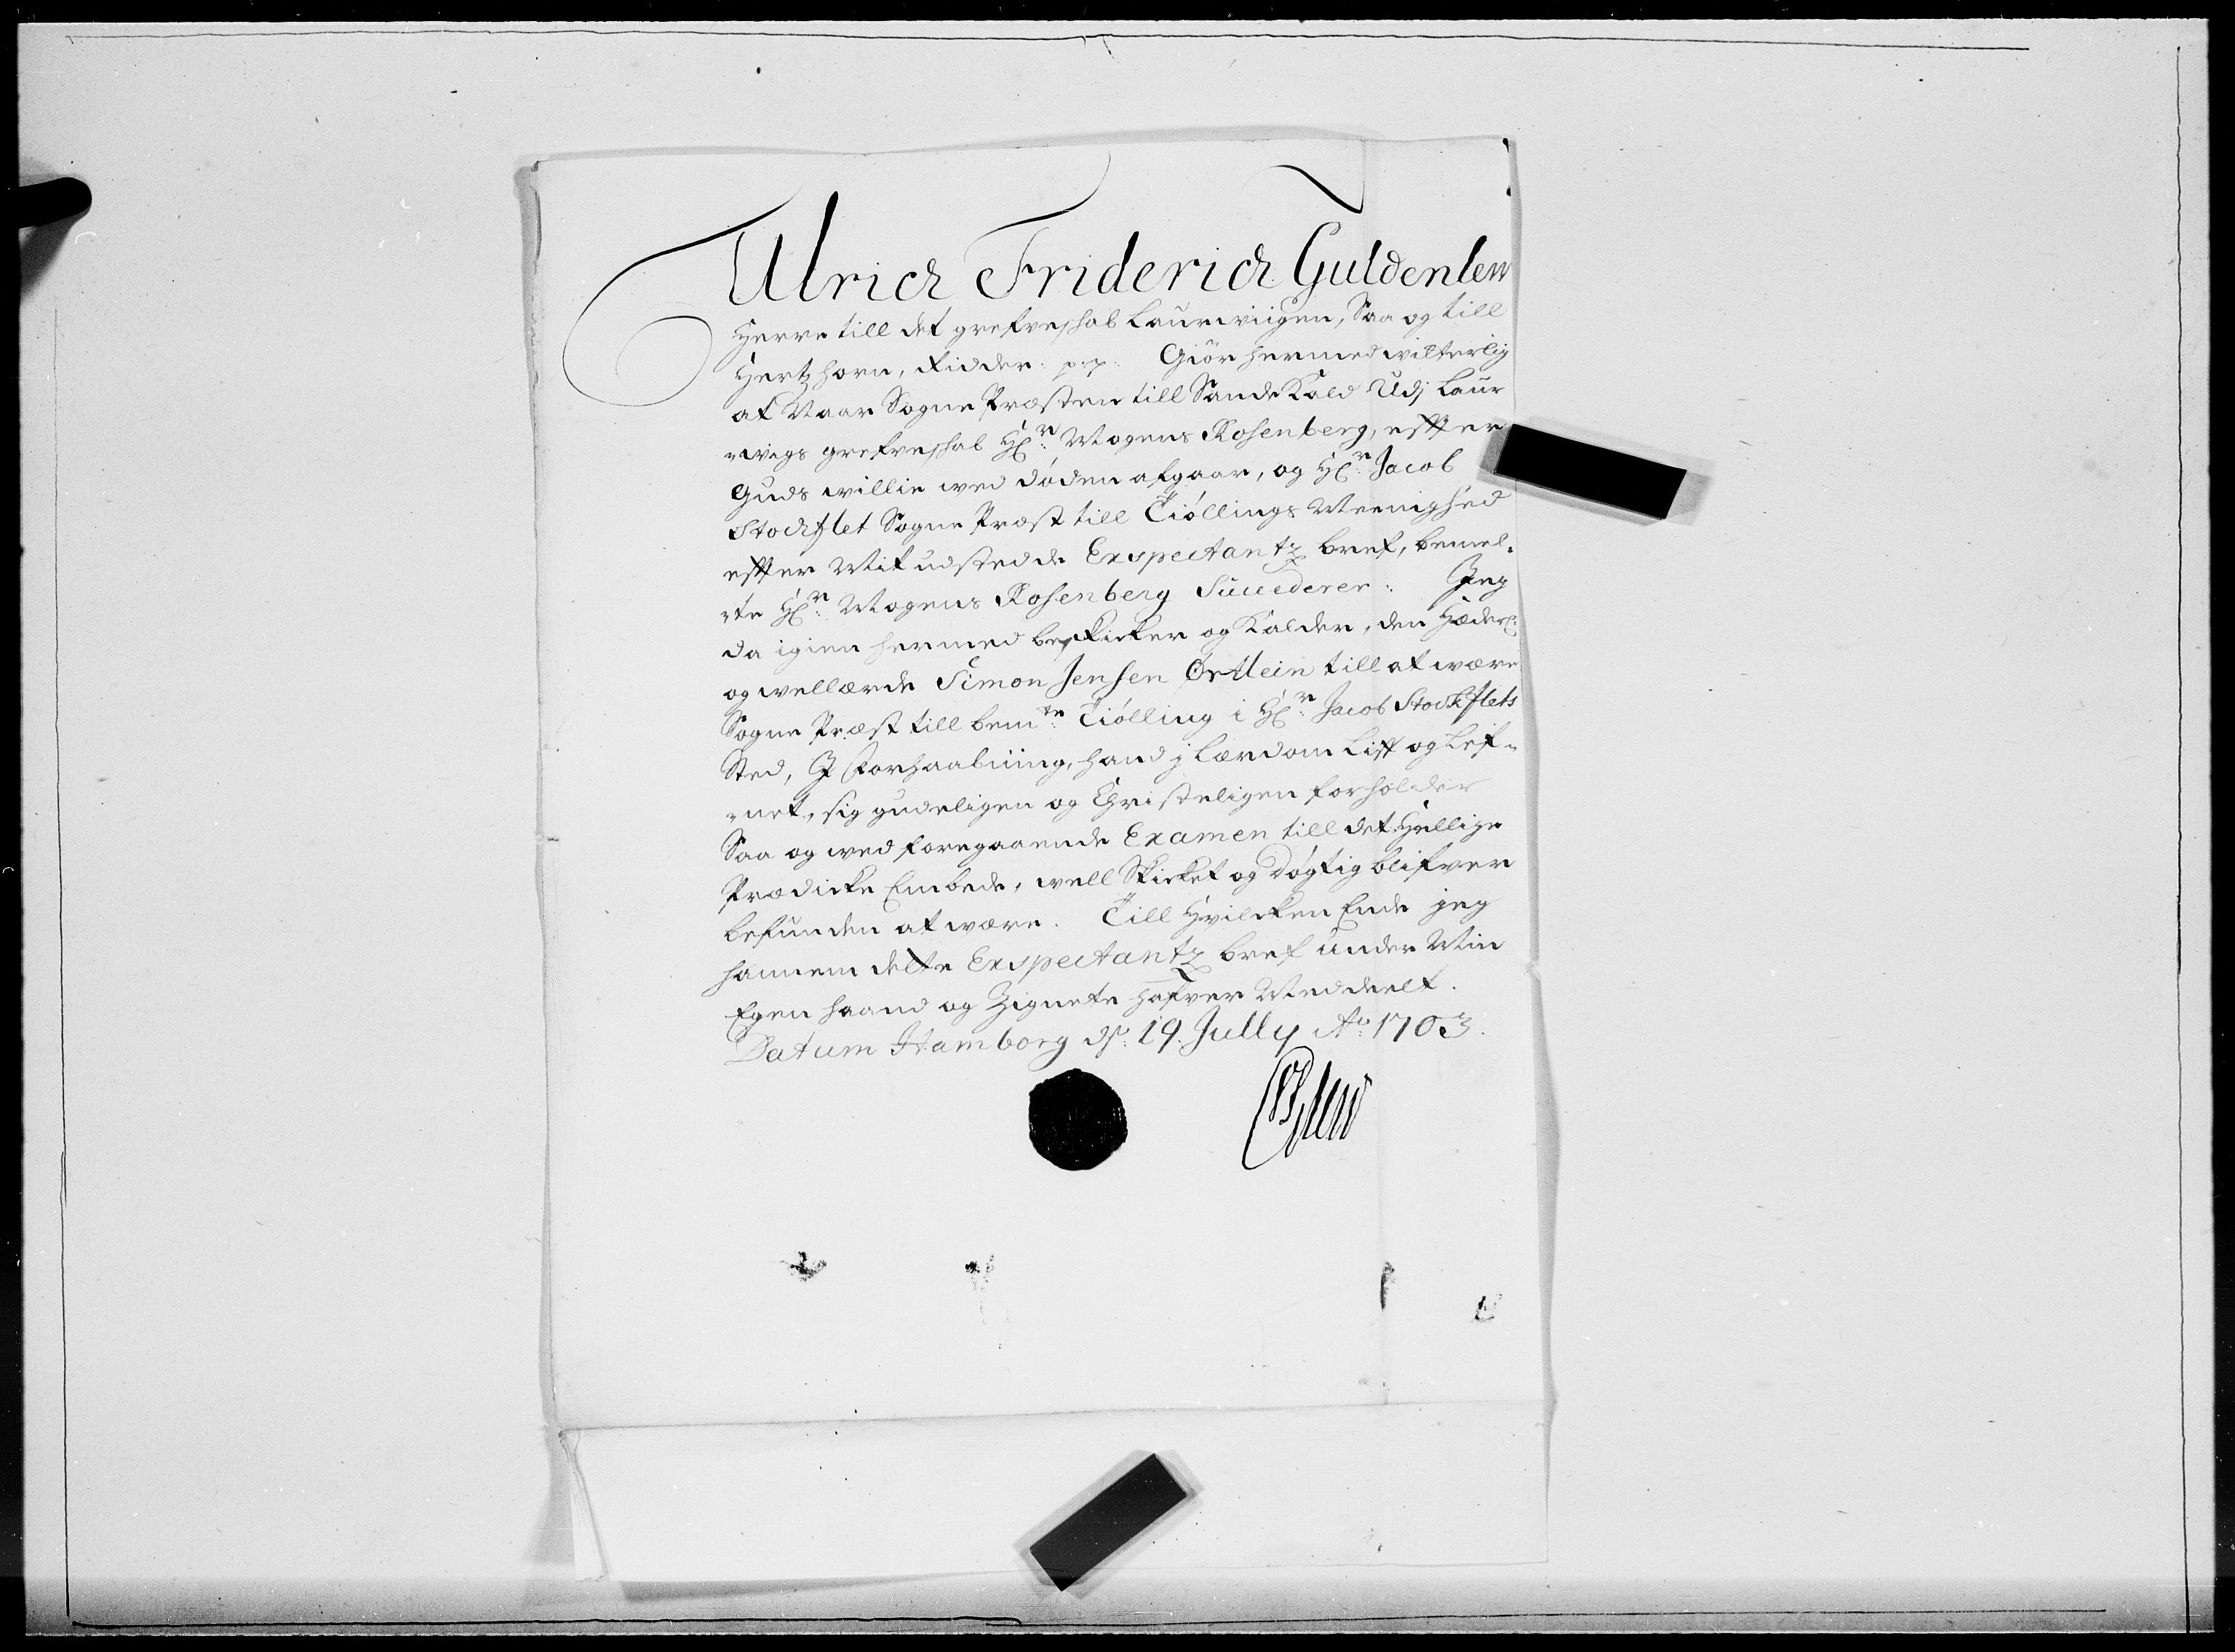 Ulrich Friderich Guldenlew
Herre till det grefveskab Laurwiigen, Saa og till
Hertzhorn, Ridder: p:p: Giör hermed witterlig
at Naar Sogne Præsten till Sande Kald Udj Laur
wigs grefveskab Hr: Mogens Rosenberg, effter
Guds willie wed döden afgaar, og Hr: Jacob
Stockflet Sogne Præst till Tiöllings Meenighed
effter Mit udstedde Exspectantz bref, bemel-
te Hr: Mogens Rosenberg Succederer: Jeg
da igien hermed beskicker og Kalder, den Hæderl:
og wellærde Simon Jensen Ortlein till at være
Sogne Præst till bemte Tiölling i Hr: Jacob Stockflets
Sted, J Forhaabning, hand j Lærdom Liff og Lef-
net, sig gudeligen og Christeligen forholder
Saa og wed foregaaende Examen till det Hellige
Prædicke Embede, well Skicket og døgtig blifver
befunden at være. Till Hvilcken Ende jeg
hannem dette Exspectantz bref under Min
Egen haand og Zignete hafver Meddeelt.
Datum Hamborg ds: 19. Jully Ao 1703.